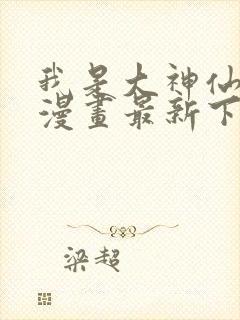 我是大神仙
漫畫最新下
梁超